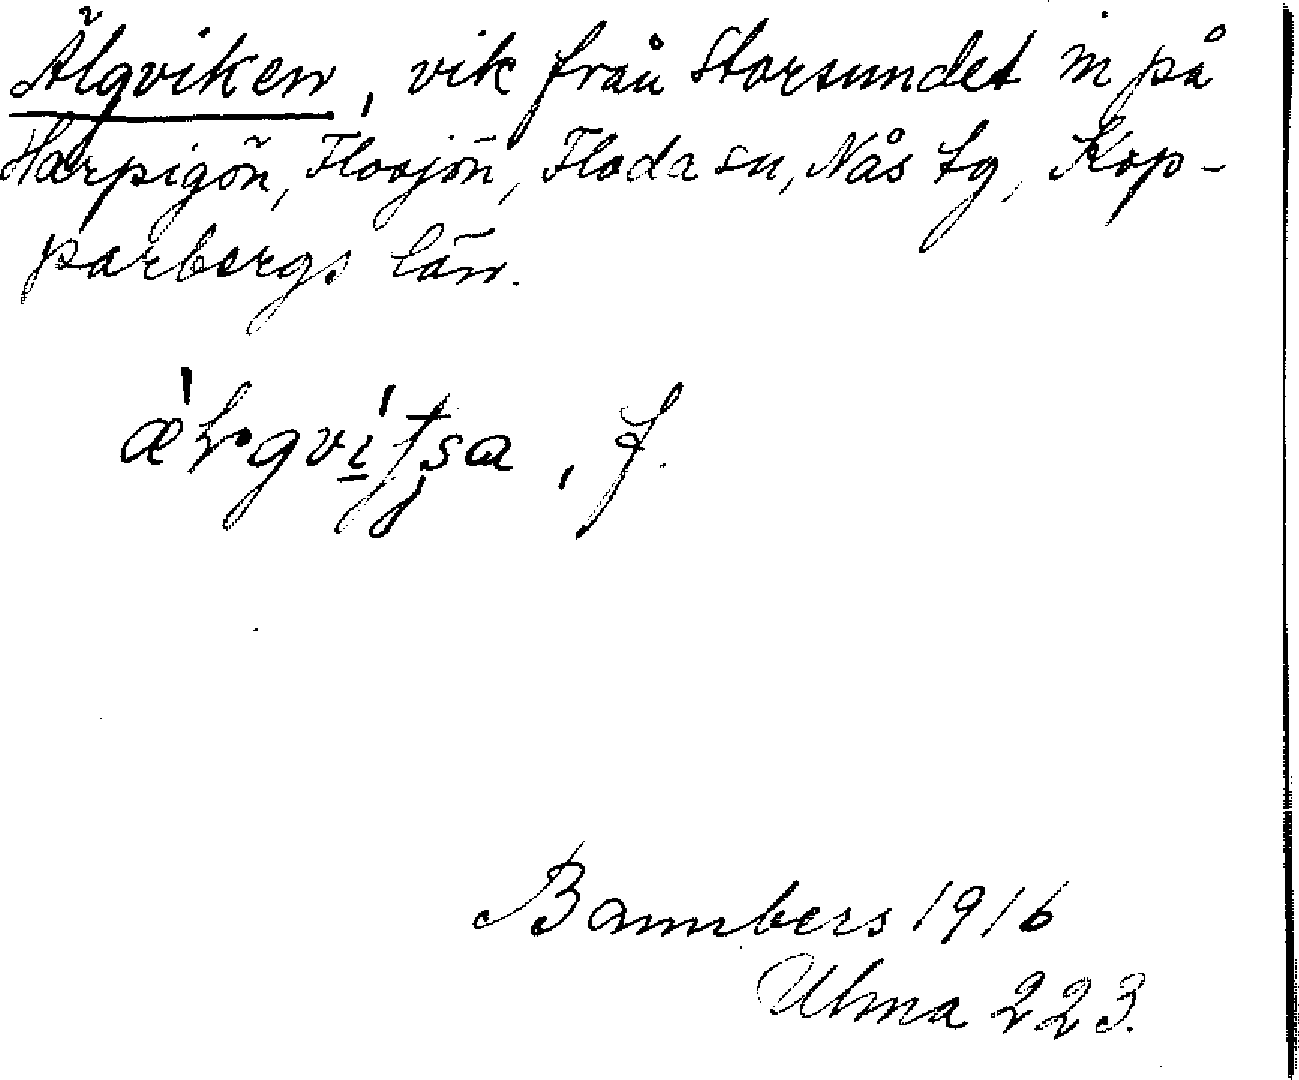 Älgviken, vik från Storsundet in på
Harpigön, Flosjön, Floda sn, Nås tg, Kop-
parbergs län.
, f.
Bannbers 1916
Ulma 223.